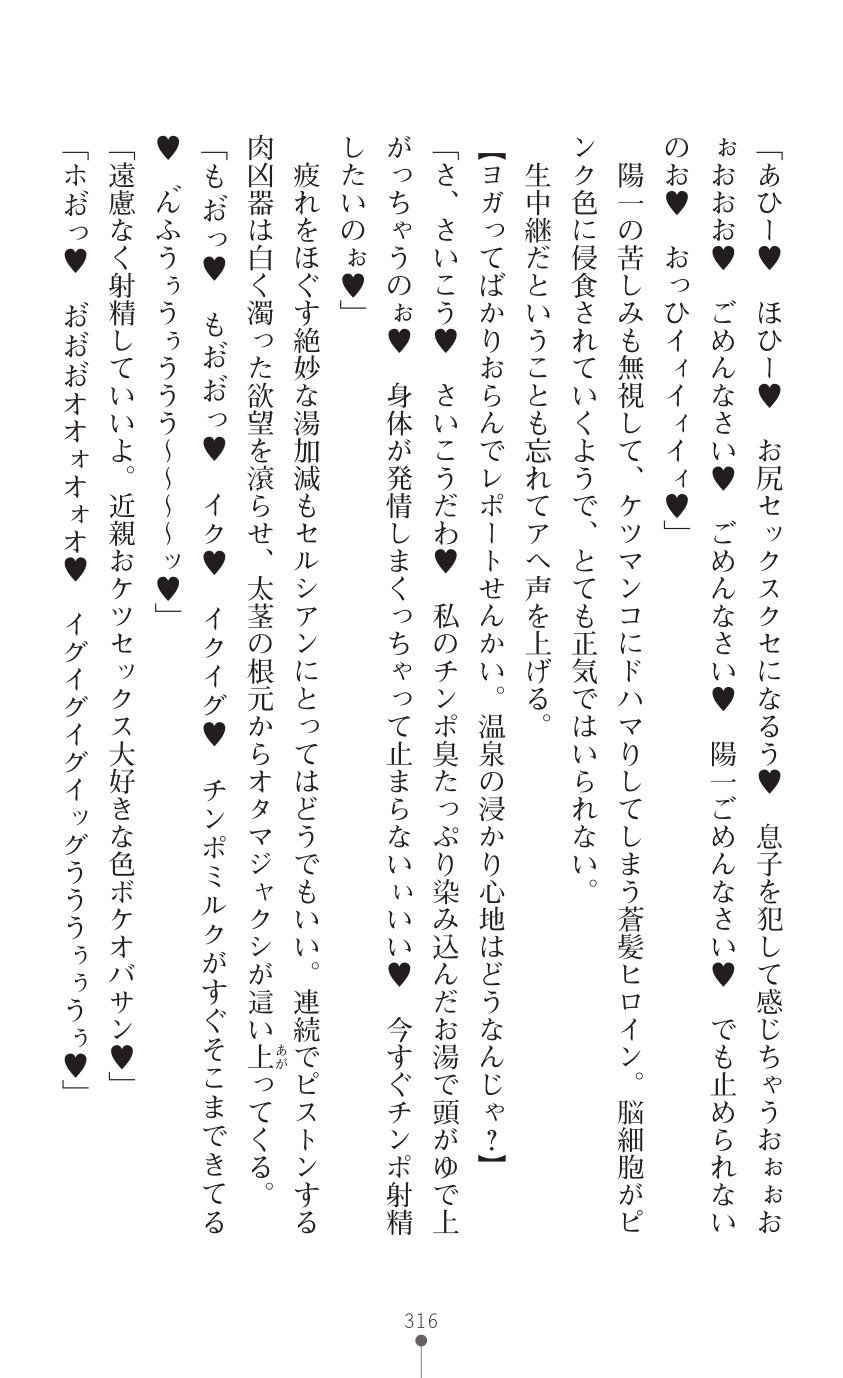 「あひー♥　ほひー♥　お尻セックスクセになるう♥　息子を犯して感じちゃうおぉぉお
ぉおおお♥　ごめんなさい♥　ごめんなさい♥　陽一ごめんなさい♥　でも止められない
のお♥　おっひイィイィイィ♥」
　陽一の苦しみも無視して、ケツマンコにドハマりしてしまう蒼髪ヒロイン。脳細胞がピ
ンク色に侵食されていくようで、とても正気ではいられない。
　生中継だということも忘れてアヘ声を上げる。
【ヨガってばかりおらんでレポートせんかい。温泉の浸かり心地はどうなんじゃ？】
「さ、さいこう♥　さいこうだわ♥　私のチンポ臭たっぷり染み込んだお湯で頭がゆで上
がっちゃうのぉ♥　身体が発情しまくっちゃって止まらないぃいい♥　今すぐチンポ射精
したいのぉ♥」
　疲れをほぐす絶妙な湯加減もセルシアンにとってはどうでもいい。連続でピストンする
肉凶器は白く濁った欲望を滾らせ、太茎の根元からオタマジャクシが這い上ってくる。
あが
「もお゛っ♥　もお゛お゛っ♥　イク♥　イクイグ♥　チンポミルクがすぐそこまできてる
♥　ん゛ふうぅうぅううう～～～～ッ♥」
「遠慮なく射精していいよ。近親おケツセックス大好きな色ボケオバサン♥」
「ホお゛っ♥　お゛お゛お゛オオォオォオ♥　イグイグイグイッグうううぅぅうぅ♥」
316